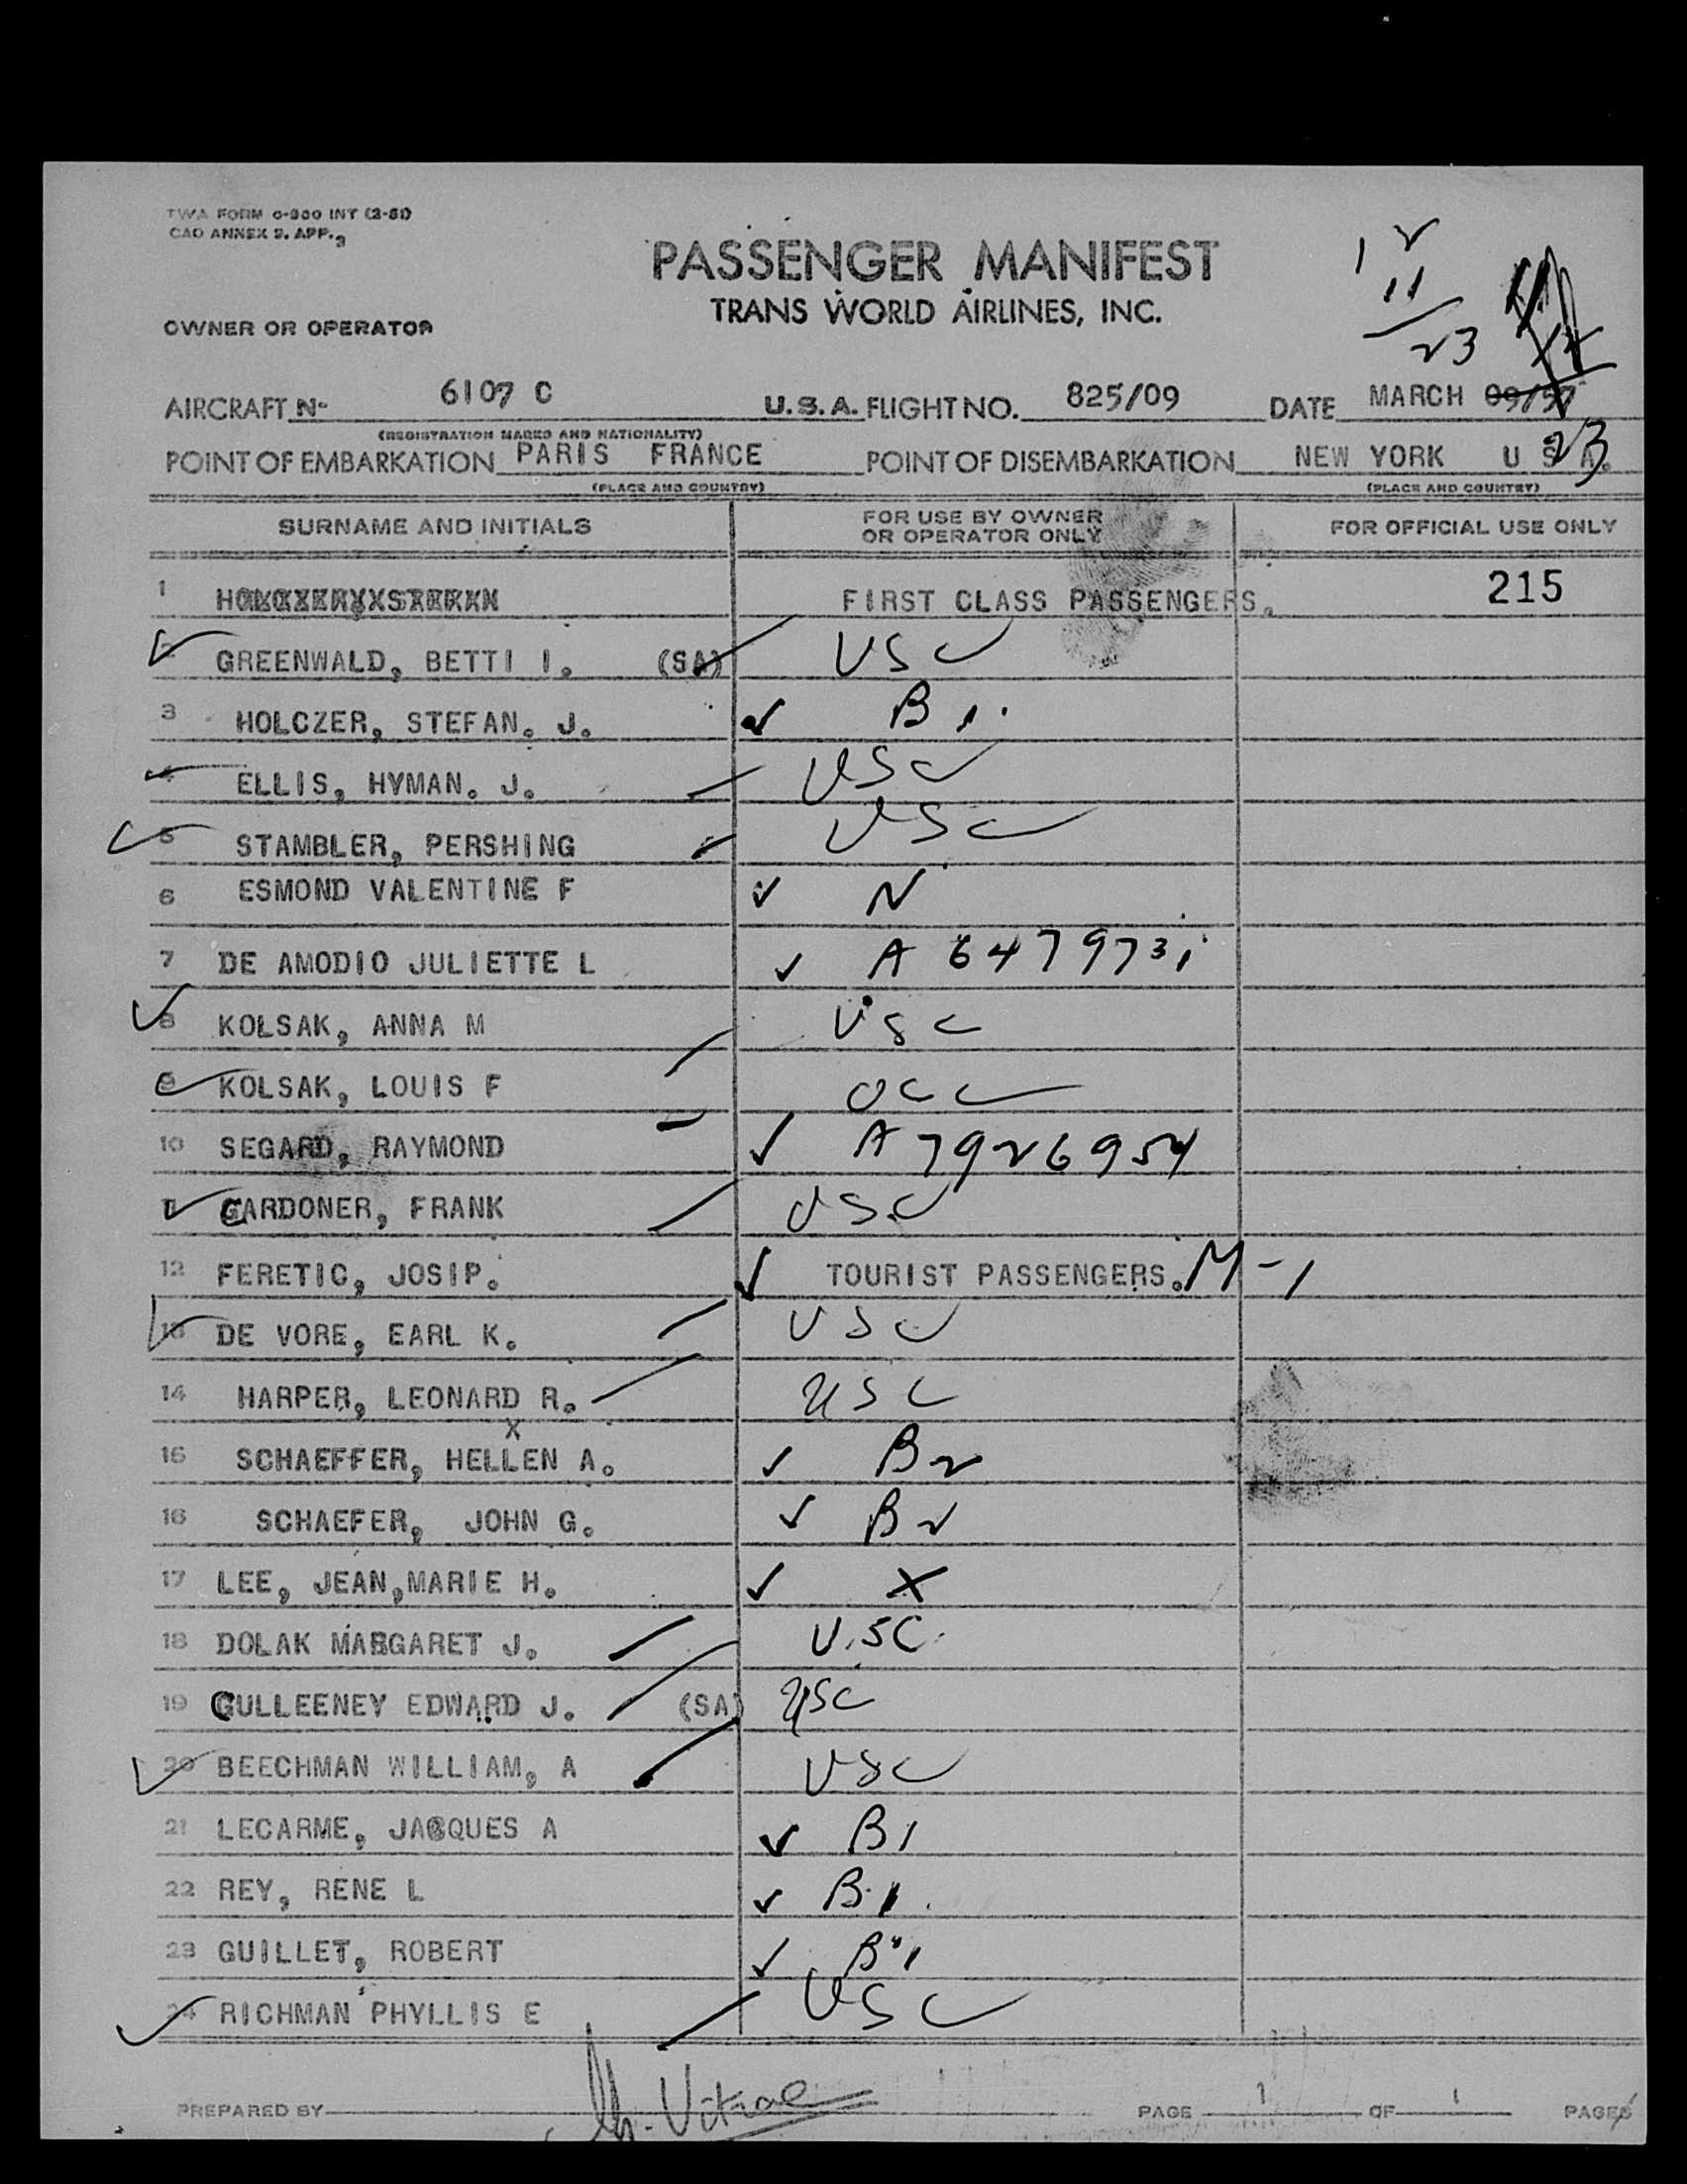 TWA FORM 0-300 INT (2-51)
CAO ANNEX 9. APP. 3
PASSENGER MANIFEST
TRANS WORLD AIRLINES, INC.
1 2
11
23
OWNER OR OPERATOR
AIRCRAFT No 6107 C U.S.A. FLIGHT NO. 825/09 DATE MARCH 09/57
(REGISTRATION MARKS AND NATIONALITY)
POINT OF EMBARKATION PARIS FRANCE POINT OF DISEMBARKATION NEW YORK U S A. 23
(PLACE AND COUNTRY) (PLACE AND COUNTRY)
SURNAME AND INITIALS FOR USE BY OWNER OR OPERATOR ONLY FOR OFFICIAL USE ONLY
1 FIRST CLASS PASSENGERS. 215
2 GREENWALD, BETTI I. (SA) USC
3 HOLCZER, STEFAN. J. B1.
4 ELLIS, HYMAN. J. USC
5 STAMBLER, PERSHING USC
6 ESMOND VALENTINE F N
7 DE AMODIO JULIETTE L A 6479731
8 KOLSAK, ANNA M USC
9 KOLSAK, LOUIS F
10 SEGARD, RAYMOND A 7926954
11 GARDONER, FRANK USC
12 FERETIC, JOSIP. TOURIST PASSENGERS. M-1
13 DE VORE, EARL K. USC
14 HARPER, LEONARD R. USC
X
15 SCHAEFFER, HELLEN A. B2
16 SCHAEFER, JOHN G. B2
17 LEE, JEAN,MARIE H. X
18 DOLAK MARGARET J. U.SC.
19 CULLEENEY EDWARD J. (SA) USC
20 BEECHMAN WILLIAM, A USC
21 LECARME, JACQUES A B1
22 REY, RENE L B1.
23 GUILLET, ROBERT B1
24 RICHMAN PHYLLIS E USC
PREPARED BY PAGE 1 OF 1 PAGES